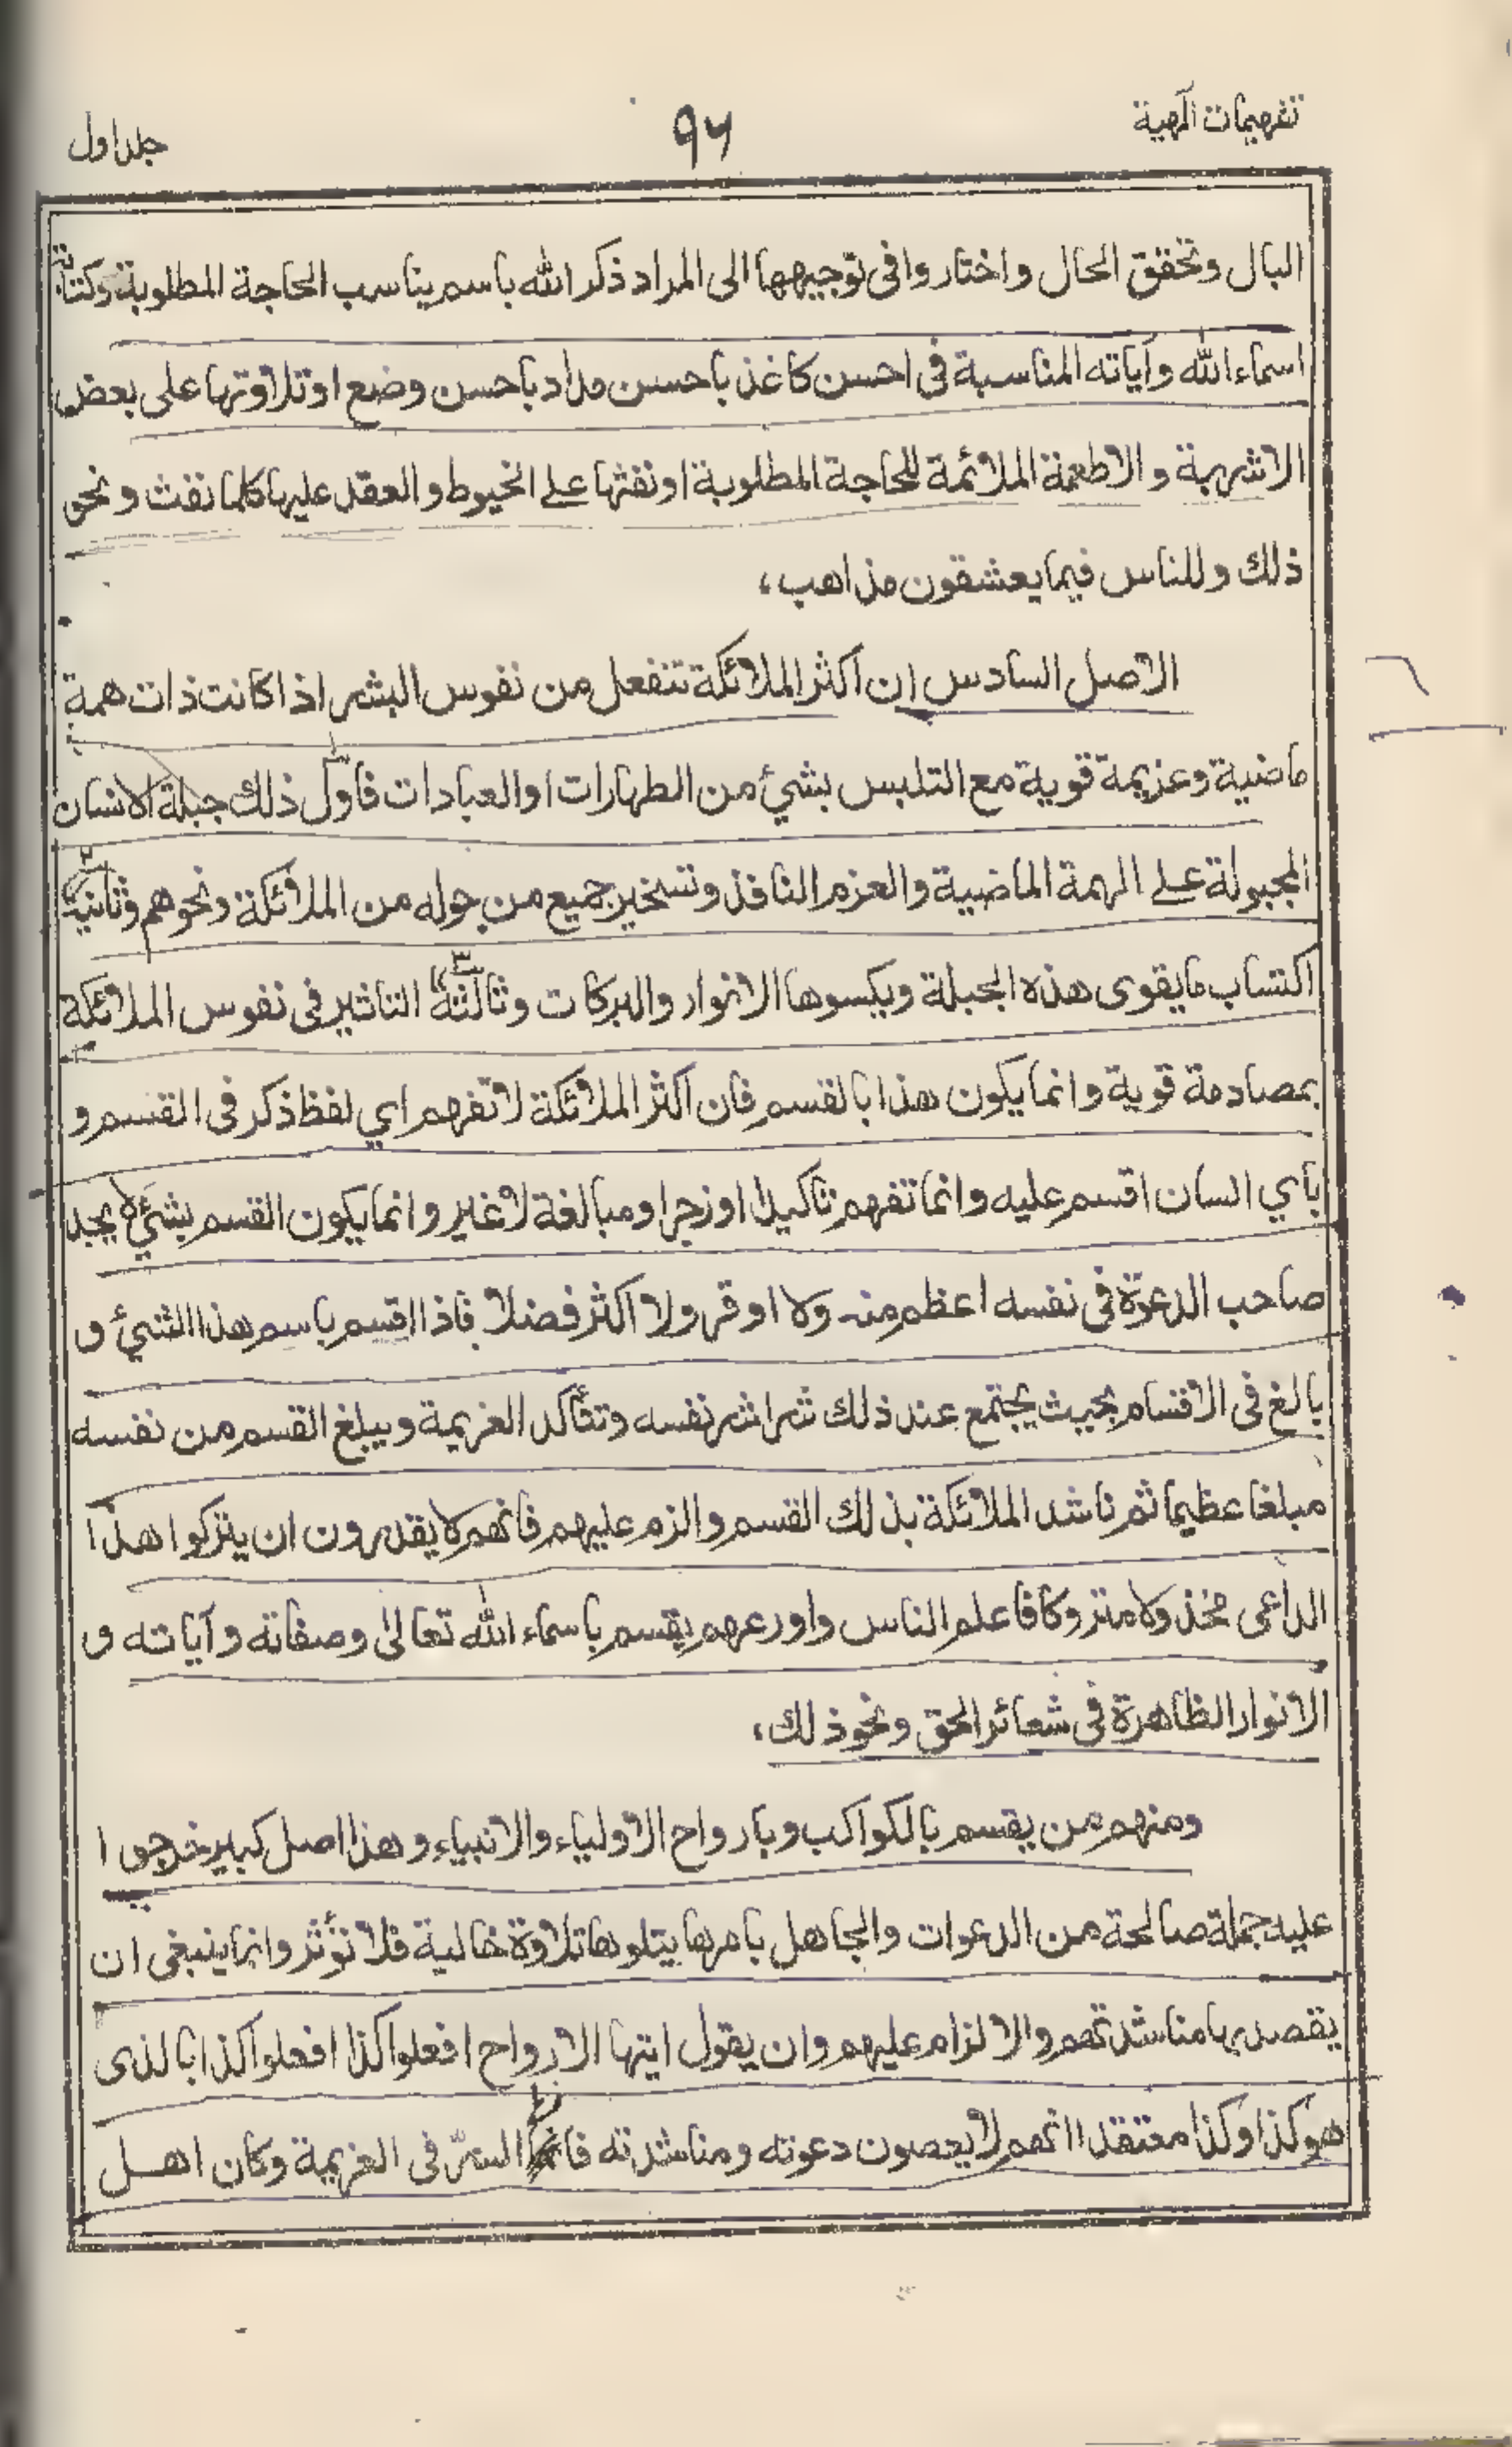 تفهيمات آلهية
۹۶
جلد اول
البال وتحقق الحال واختاروا فى توجيهها الى المراد ذكر الله باسم يناسب الحاجة المطلوبة وكتابة
اسماء الله وآياته المناسبة فى احسن كاغذ باحسن مداد باحسن وضع او تلاوتها على بعض
الاشربة والاطعمة الملائمة للحاجة المطلوبة او نفثها على الخيوط والعقد عليها كلما نفث ونحو
ذلك وللناس فيما يعشقون مذاهب،
الاصل السادس ان اكثر الملائكة تنفعل من نفوس البشر اذا كانت ذات همة
ماضية وعزيمة قوية مع التلبس بشئ من الطهارات او العبادات فاول ذلك جبلة الانسان
المجبولة على الهمة الماضية والعزم النافذ وتسخير جميع من حوله من الملائكة ونحوهم وثانيه
اكتساب ما يقوى هذه الجبلة ويكسوها الانوار والبركات وثالثة التاثير فى نفوس الملائكة
بمصادمة قوية وانما يكون هذا بالقسم فان اكثر الملائكة لا تفهم اي لفظ ذكر فى القسم و
بأي لسان اقسم عليه وانما تفهم تاكيدا او زجرا ومبالغة لا غير وانما يكون القسم بشئ لا يجد
صاحب الدعوة فى نفسه اعظم منه ولا اوقر ولا اكثر فضلا فاذا اقسم باسم هذا الشئ و
بالغ فى الاقسام بحيث يجتمع عند ذلك شراشر نفسه وتتأكد العزيمة ويبلغ القسم من نفسه
مبلغا عظيما ثم ناشد الملائكة بذلك القسم والزم عليهم فانهم لا يقدرون ان يتركوا هذا
الداعى مخذولا متروكا فاعلم الناس واورعهم يقسم باسماء الله تعالى وصفاته وآياته و
الانوار الظاهرة فى شعائر الحق ونحو ذلك،
ومنهم من يقسم بالكواكب وبارواح الاولياء والانبياء وهذا اصل كبير خرجوا
عليه جملة صالحة من الدعوات والجاهل بامرها يتلوها تلاوة خالية فلا تؤثر وانما ينبغى ان
يقصد بها مناشدتهم والالزام عليهم وان يقول ايتها الارواح افعلوا كذا افعلوا كذا بالذى
هو كذا وكذا معتقدا انهم لا يعصون دعوته ومناشدته فانما السرّ فى العزيمة وكان اهل